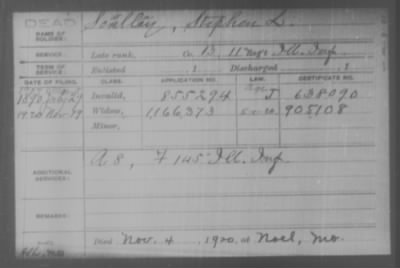 DEAD
NAME OF SOLDIER: Stephen L.
SERVICE: Late rank, Co. B, 11 Reg't Ill. Inf.
TERM OF SERVICE: Enlisted , 1 Discharged , 1
DATE OF FILING. CLASS. APPLICATION NO. LAW. CERTIFICATE NO.
1890, July 29 Invalid, 855294 J 638090
1920 Nov. 19 Widow, 1,166,373 905108
Minor,
ADDITIONAL SERVICES: A 8, F 145 Ill. Inf.
REMARKS:
Died Nov. 4, 1920, at Noel, Mo.